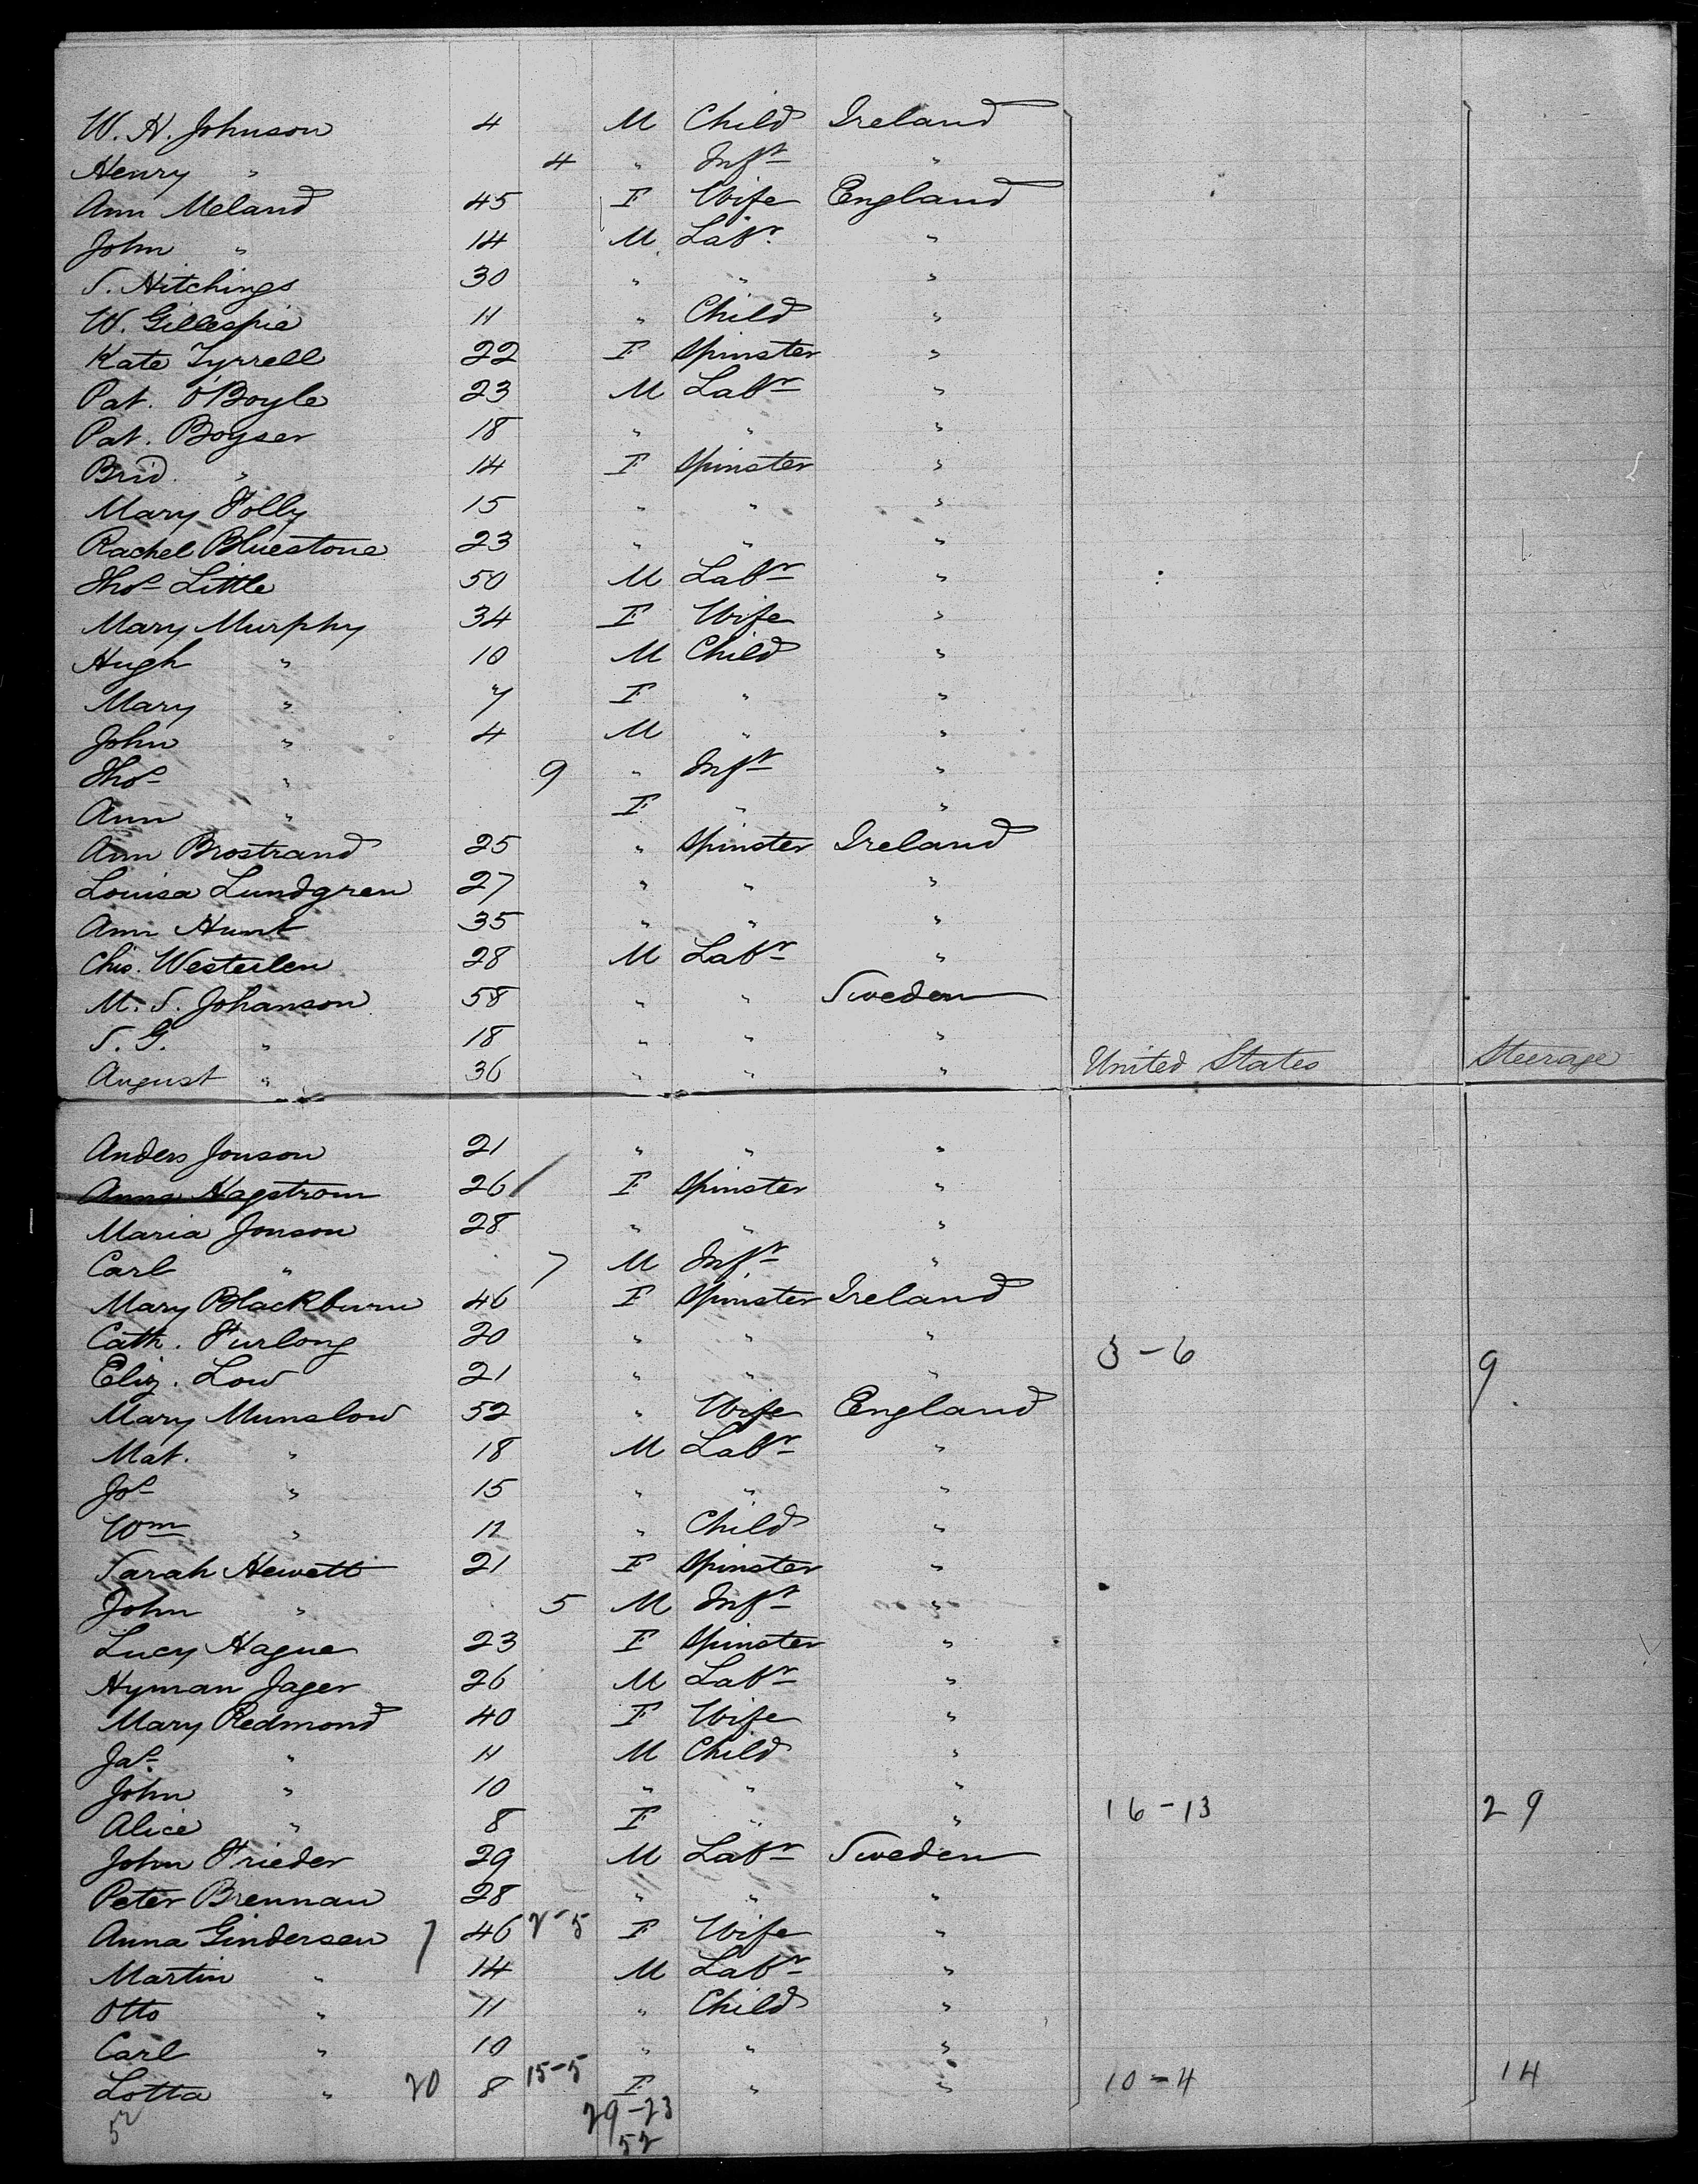 W. H. Johnson 4 M Child Ireland
Henry " 4 " Inft "
Ann Meland 45 F Wife England
John " 14 M Labr "
S. Hitchings 30 " " "
W. Gillespie 11 " Child "
Kate Tyrrell 22 F Spinster "
Pat. O'Boyle 23 M Labr "
Pat. Boyser 18 " " "
Brid. " 14 F Spinster "
Mary Folly 15 " " "
Rachel Bluestone 23 " " "
Thos Little 50 M Labr "
Mary Murphy 34 F Wife "
Hugh " 10 M Child "
Mary " 7 F " "
John " 4 M " "
Thos " 9 " Inft "
Ann " F " "
Ann Brostrand 25 " Spinster Ireland
Louisa Lundgren 27 " " "
Ann Hunt 35 " " "
Chs. Westerlen 28 M Labr "
M. S. Johanson 58 " " Sweden
S. G. " 18 " " "
August " 36 " " " United States Steerage
Anders Jonson 21 " " "
Anna Hagstrom 26 F Spinster "
Maria Jonson 28 " " "
Carl " 7 M Inft "
Mary Blackburn 46 F Spinster Ireland
Cath. Furlong 20 " " " 3-6
Eliz. Low 21 " " " 9
Mary Munslow 52 " Wife England
Mat. " 18 M Labr "
Jos " 15 " " "
Wm " 11 " Child "
Sarah Hewett 21 F Spinster "
John " 5 M Inft "
Lucy Hague 23 F Spinster "
Hyman Jager 26 M Labr "
Mary Redmond 40 F Wife "
Jas. " 11 M Child "
John " 10 " " "
Alice " 8 F " " 16-13 29
John Frieder 29 M Labr Sweden
Peter Brennan 28 " " "
Anna Gindersen 7 46 2-5 F Wife "
Martin " 14 M Labr "
Otto " 11 " Child "
Carl " 10 " " "
Lotta " 20 8 15-5 F " " 10-4 14
52 29-23
52